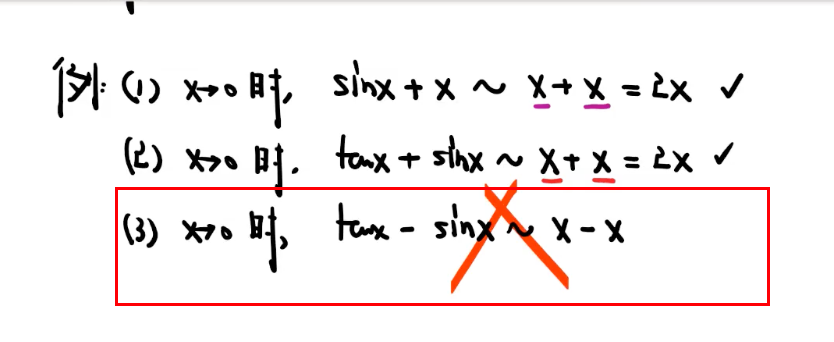 例: (1) x→0 时, sinx + x ~ x + x = 2x ✓
(2) x→0 时. tanx + sinx ~ x + x = 2x ✓
(3) x→0 时, tanx - sinx ~ x - x